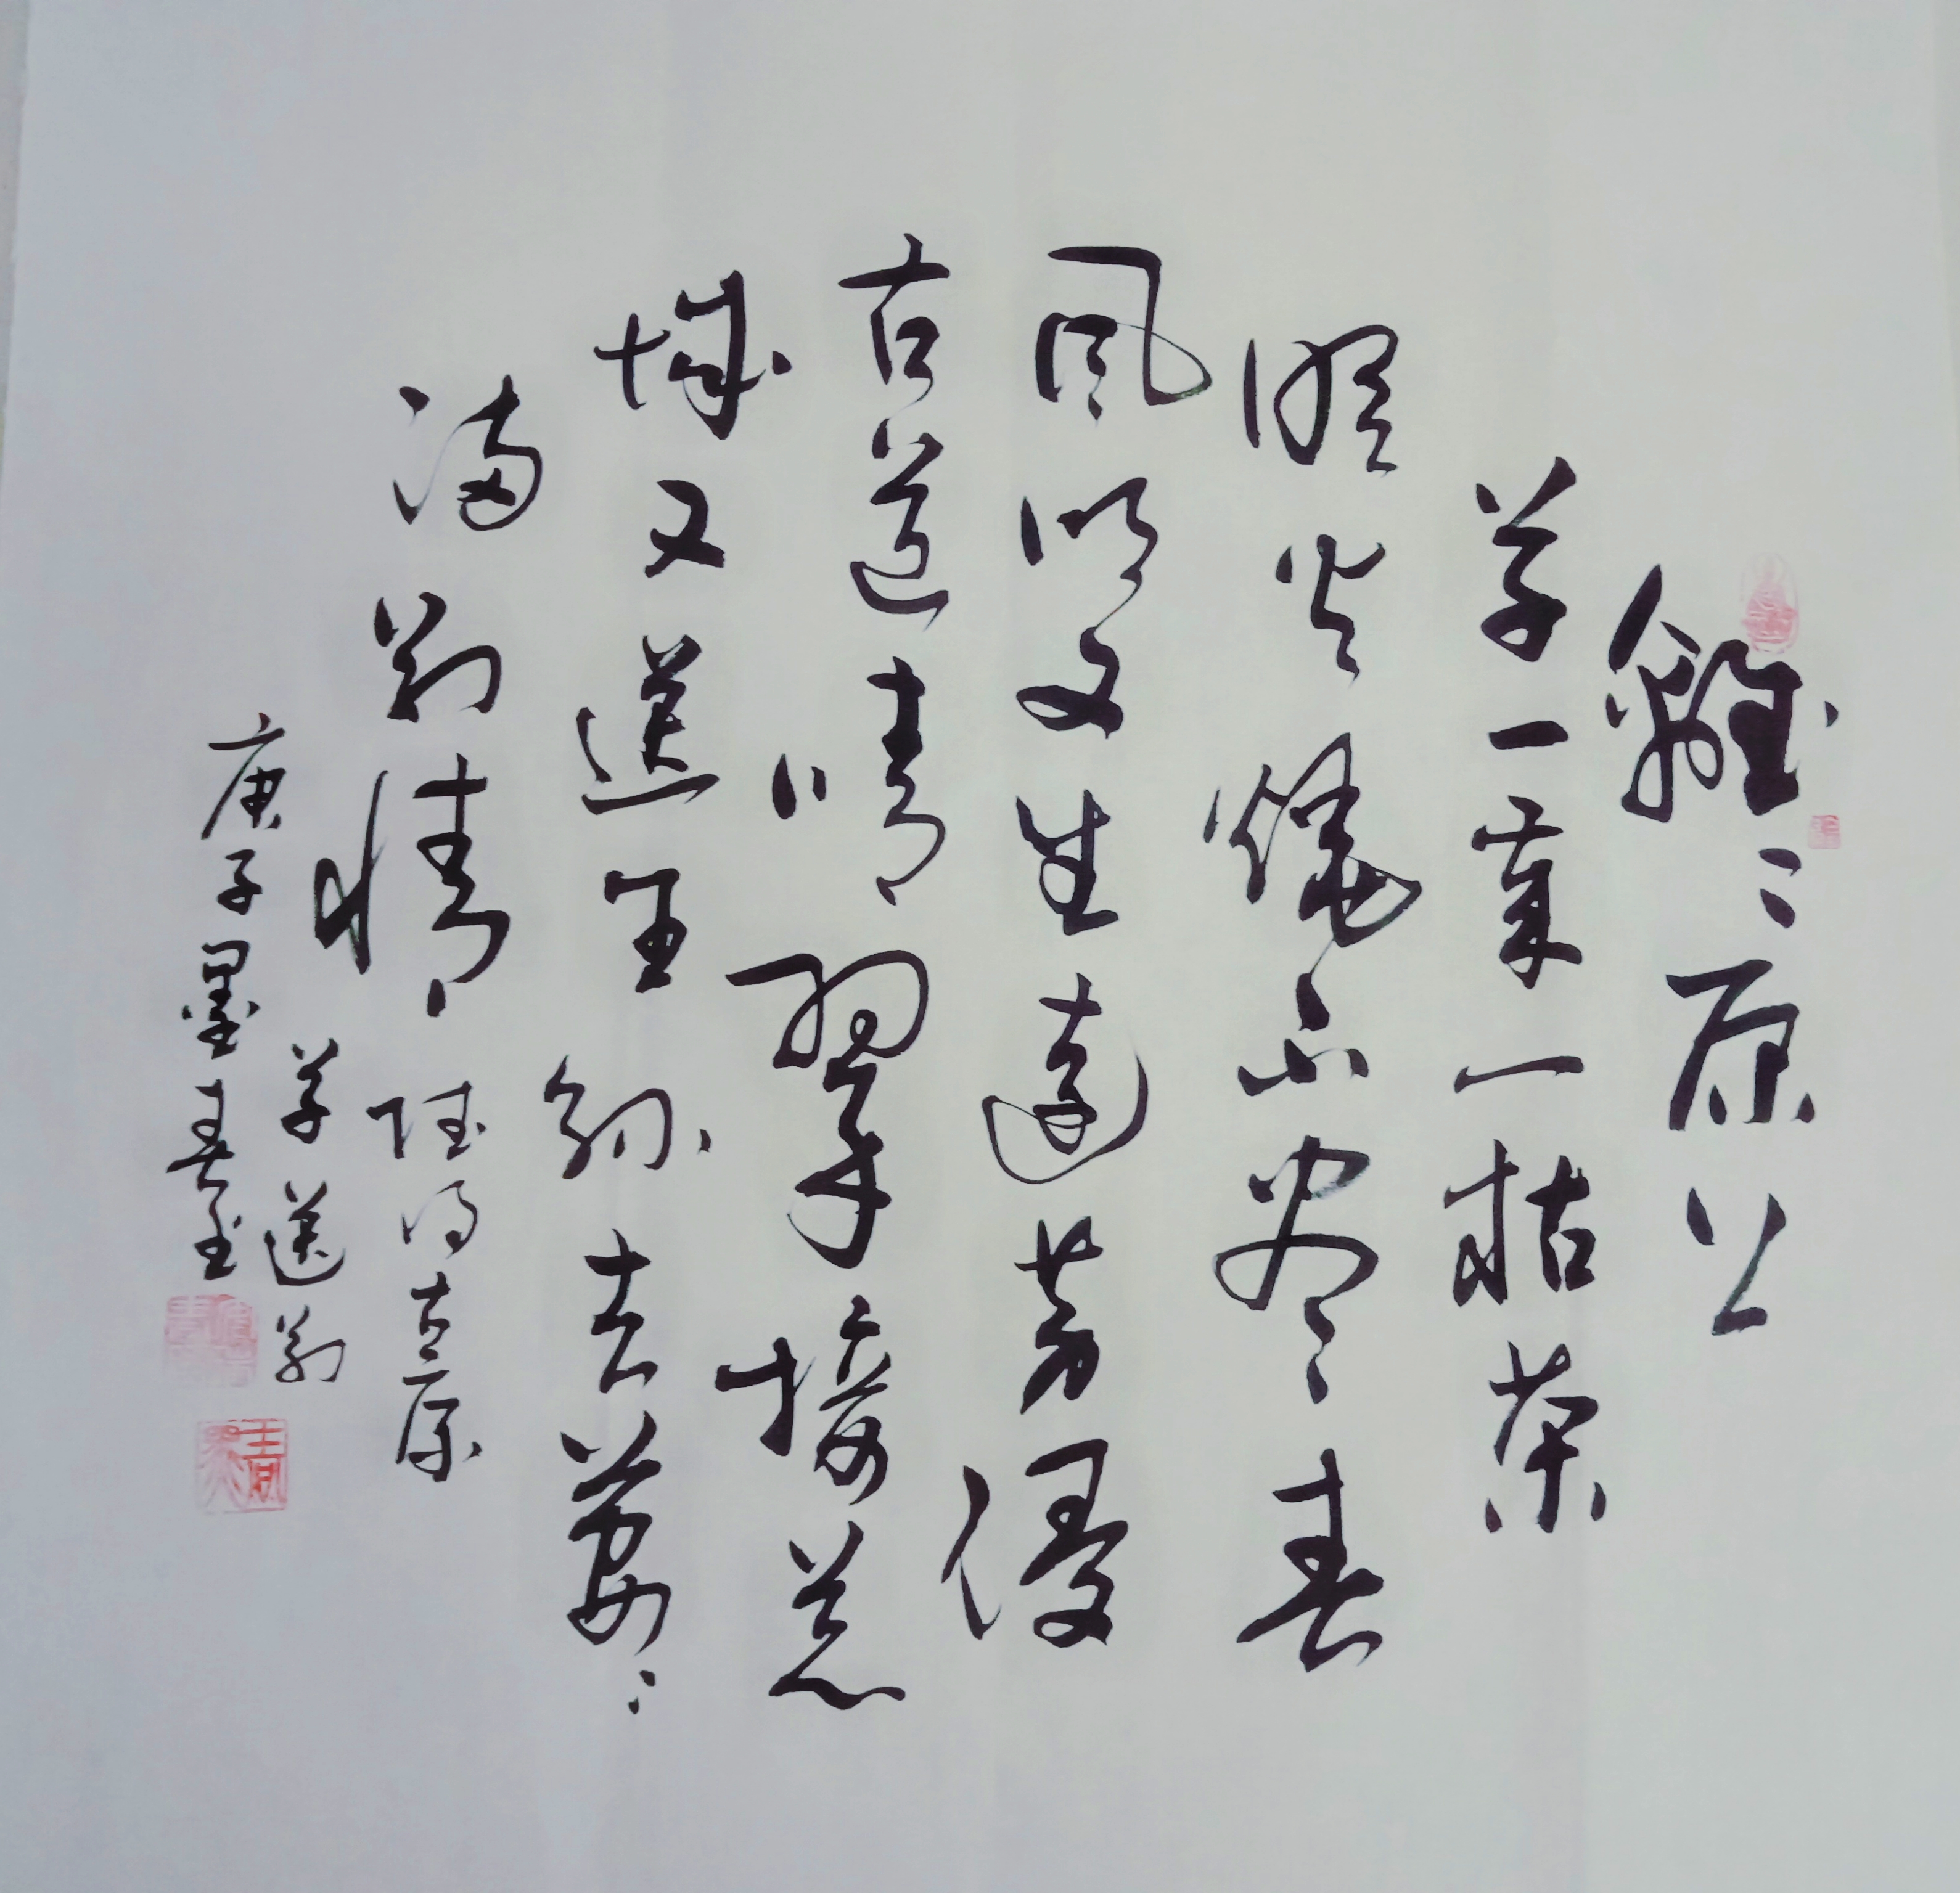 離〻原上
草一歲一枯榮
野火燒不盡春
風吹又生遠芳侵
古道晴翠接荒
城又送王孫去萋〻
滿别情 賦得古原
草送别
庚子墨春